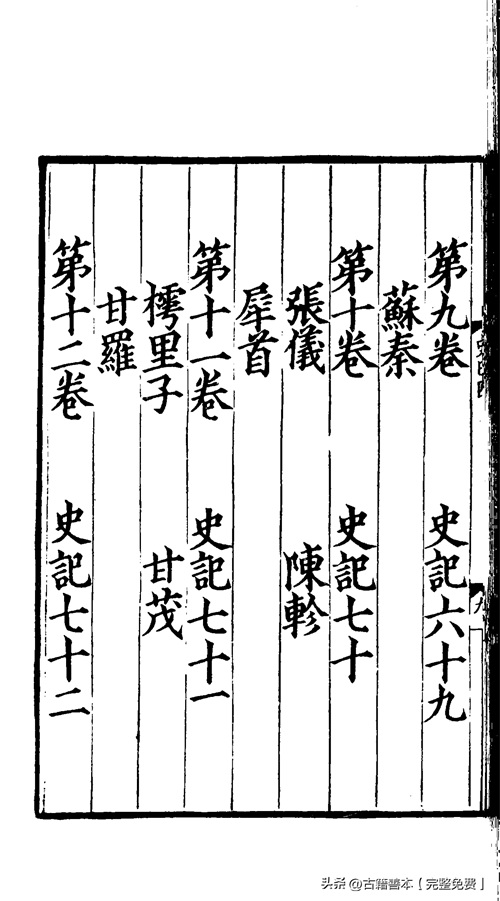 第九卷　史記六十九
蘇秦
第十卷　史記七十
張儀　陳軫
犀首
第十一卷　史記七十一
樗里子　甘茂
甘羅
第十二卷　史記七十二
头条 @古籍善本【完整免费】